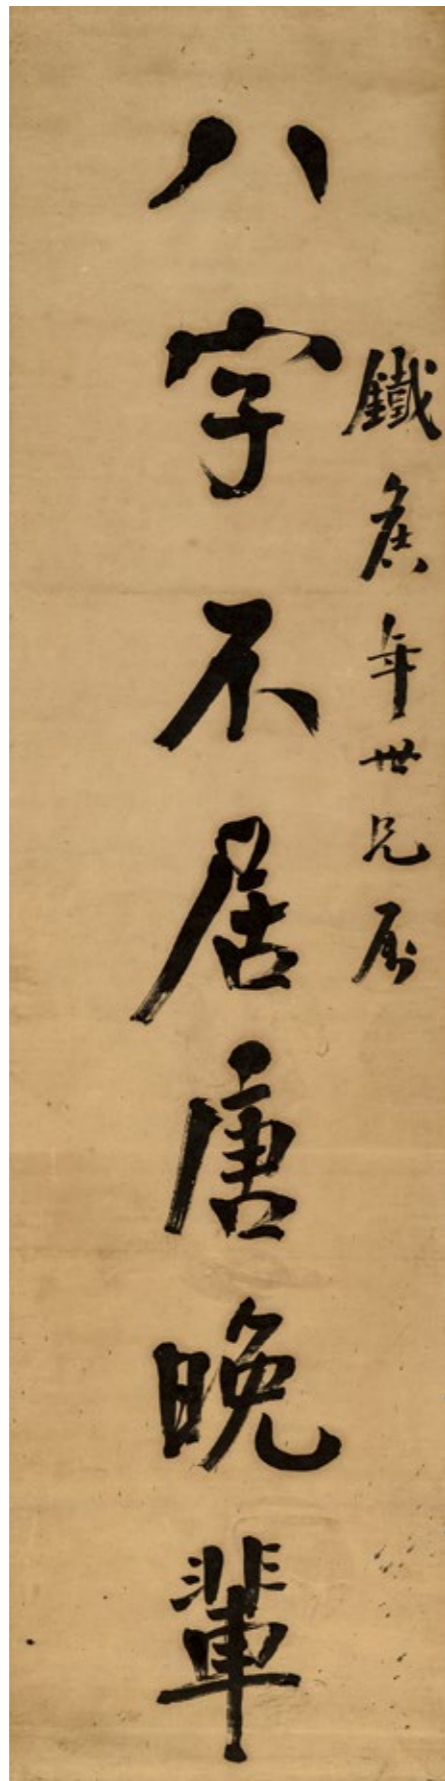 鐵矦年世兄属
八字不居唐晚輩